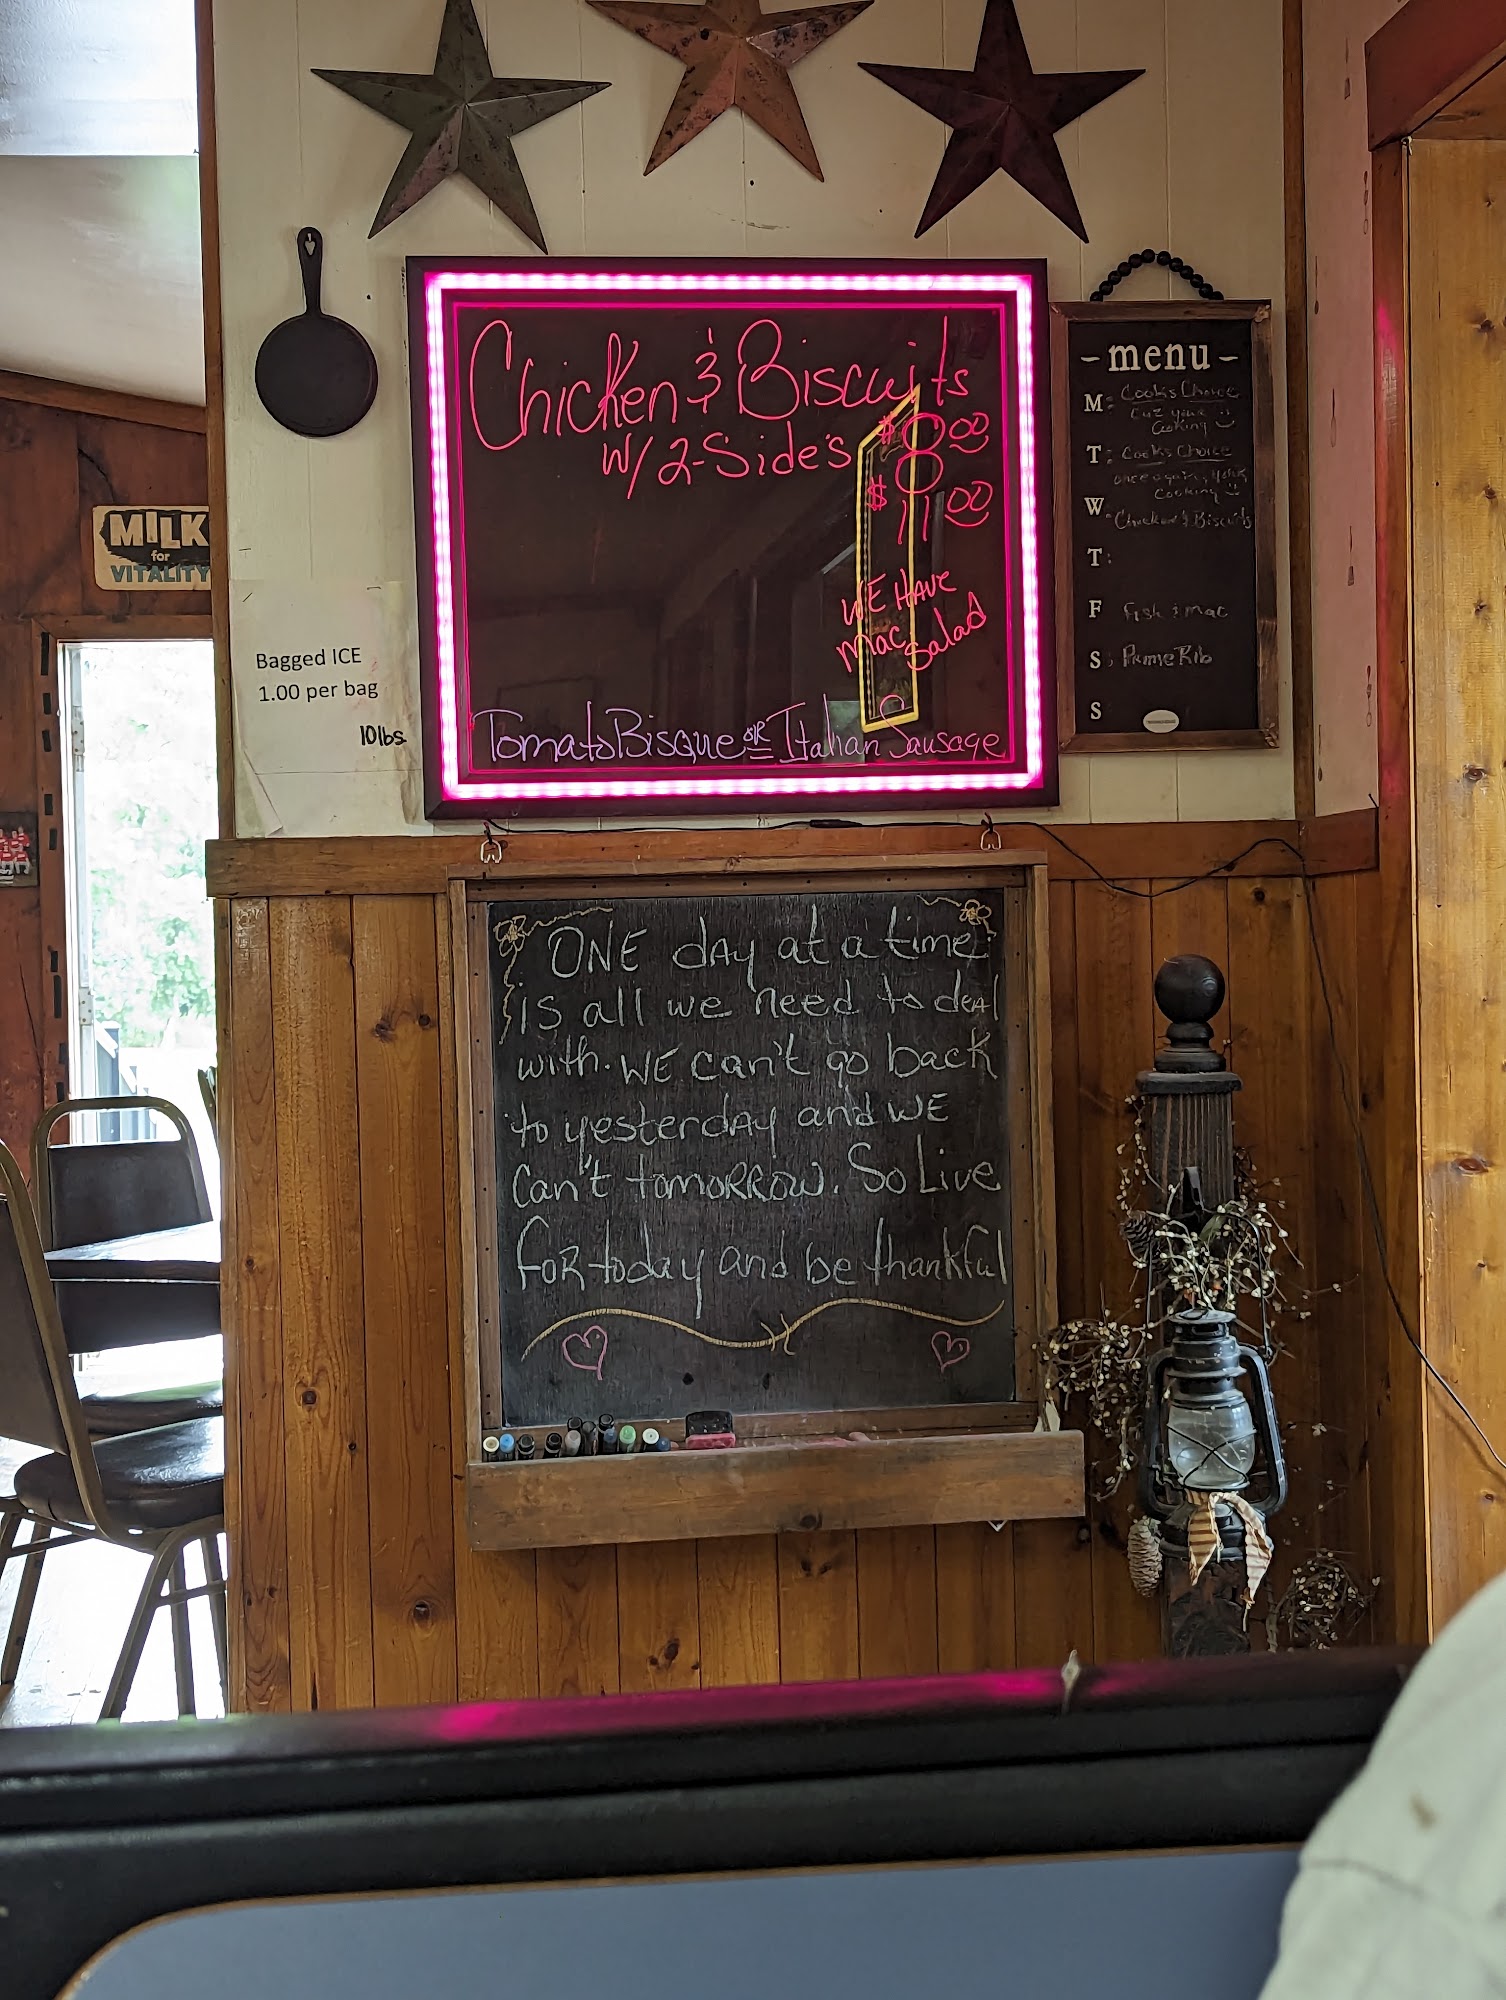 Chicken & Biscuits
w/ 2-Sides
$ 8.00
$ 11.00
WE HAVE
Mac Salad
Tomato Bisque OR Italian Sausage
- menu -
M: Cooks Choice
Cuz your
Cooking
T: Cooks Choice
once again, your
Cooking
W: Chicken & Biscuits
T:
F Fish & Mac
S: Prime Rib
S
MILK
for
VITALITY
Bagged ICE
1.00 per bag
10lbs.
ONE day at a time
is all we need to deal
with. WE can't go back
to yesterday and WE
Can't tomorrow. So Live
For today and be thankful